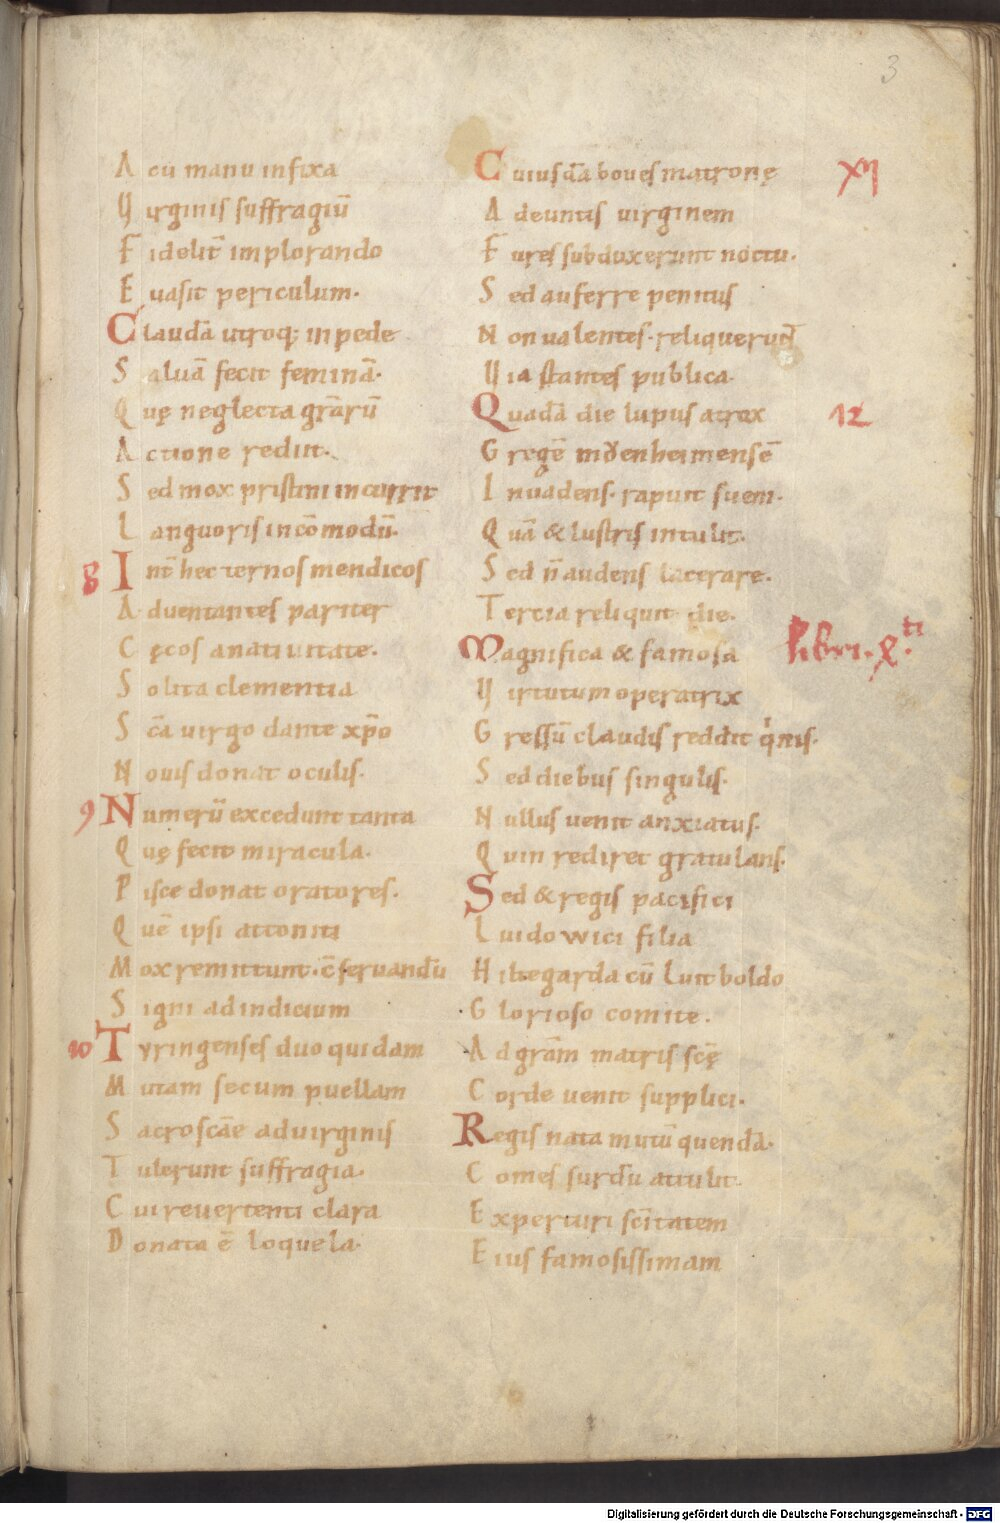 3
A cū manu infixa
V irginis suffragiū
F idelit̄ implorando
E uasit periculum.
C laudā utroq; in pede
S aluā fecit feminā.
Q uę neglecta gr̄arū
A ctione rediit.
S ed mox pristini incurrit
L anguoris incōmodū.
8 I nt̄ hec ternos mendicos
A duentantes pariter
C ęcos a natiuitate.
S olita clementia
S c̄a uirgo dante xp̄o
N ouis donat oculis.
9 N umerū excedunt tanta
Q uę fecit miracula.
P isce donat oratores.
Q uē ipsi attoniti
M ox remittunt. c̄seruandū
S igni ad indicium
10 T yringenses duo quidam
M utam secum puellam
S acroscāe ad uirginis
T ulerunt suffragia.
C ui reuertenti clara
D onata ē loquela.
C uiusdā boues matronę XII
A deuntis uirginem
F ures subduxerunt noctu.
S ed auferre penitus
N on ualentes. reliquerunt
V ia stantes publica.
Q uadā die lupus atrox 12
G regē heimensē
I nuadens. rapuit suem.
Q uā & lustris intulit.
S ed n̄ audens lacerare.
T ercia reliquit die.
M agnifica & famosa libri. X.ti
V irtutum operatrix
G ressū claudis reddit
S ed diebus singulis.
N ullus uenit anxiatus.
Q uin rediret gratulans.
S ed & regis pacifici
L uidowici filia
H iltegarda cū Luitboldo
G lorioso comite.
A d gr̄am matris sc̄ę
C orde uenit supplici.
R egis nata mutū quendā.
C omes surdū attulit.
E xperturi sc̄itatem
E ius famosissimam
Digitalisierung gefördert durch die Deutsche Forschungsgemeinschaft - DFG